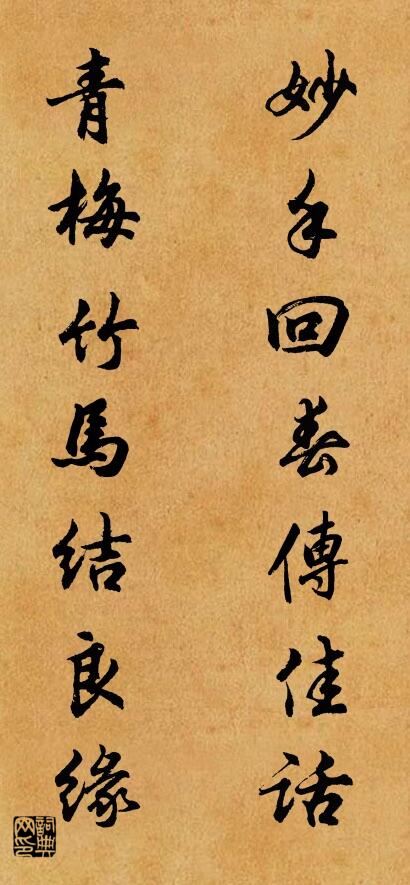 妙手回春傳佳話
青梅竹馬結良緣
詞典网印